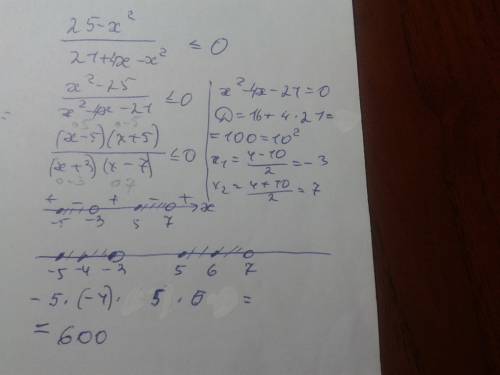 25-x²
/ 21+4x-x² ≤ 0
x²-25
/ x²-4x-21 ≤ 0
(x-5)(x+5)
/ (x+3)(x-7) ≤ 0
x²-4x-21=0
D=16+4·21=
=100=10²
x₁=4-10/2=-3
x₂=4+10/2=7
+ - + - + x
-5 -3 5 7
-5 -4 -3 5 6 7
-5·(-4)· 5 · 6 =
= 600